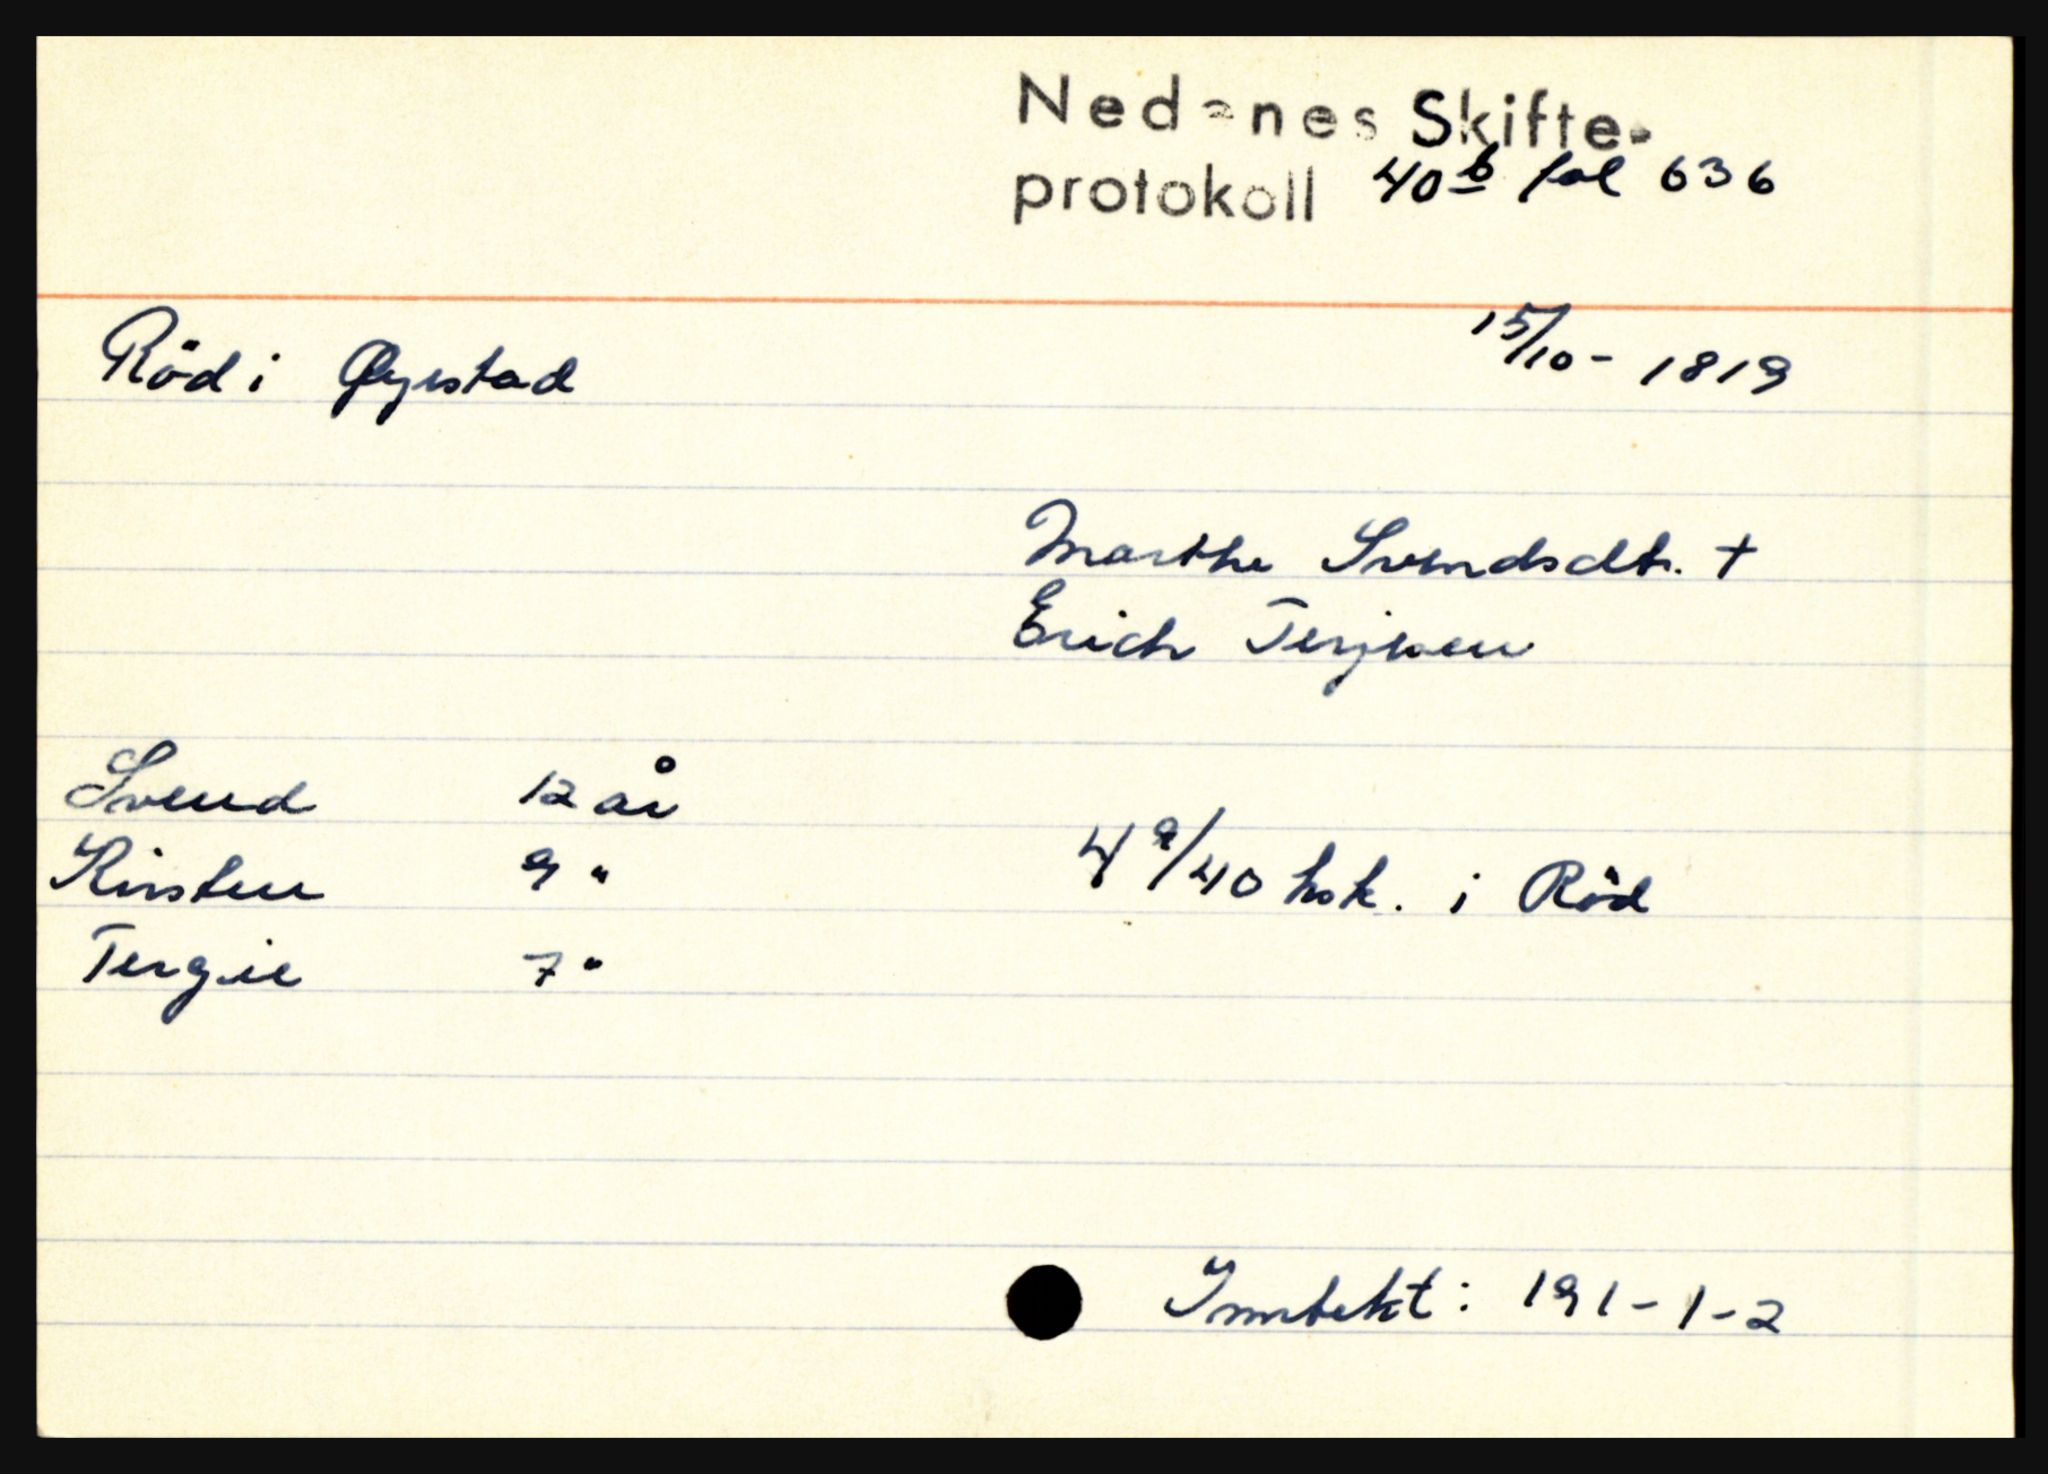 Nedenes Skifte-
protokoll 40b fol 636
Röd i Øyestad 15/10 - 1819
Marthe Svendsdtr. +
Erich Terjesen
Svend 12 år
Kirsten 9 " 4 9/40 hsk. i Röd
Tergie 7 "
Inntekt: 191-1-2